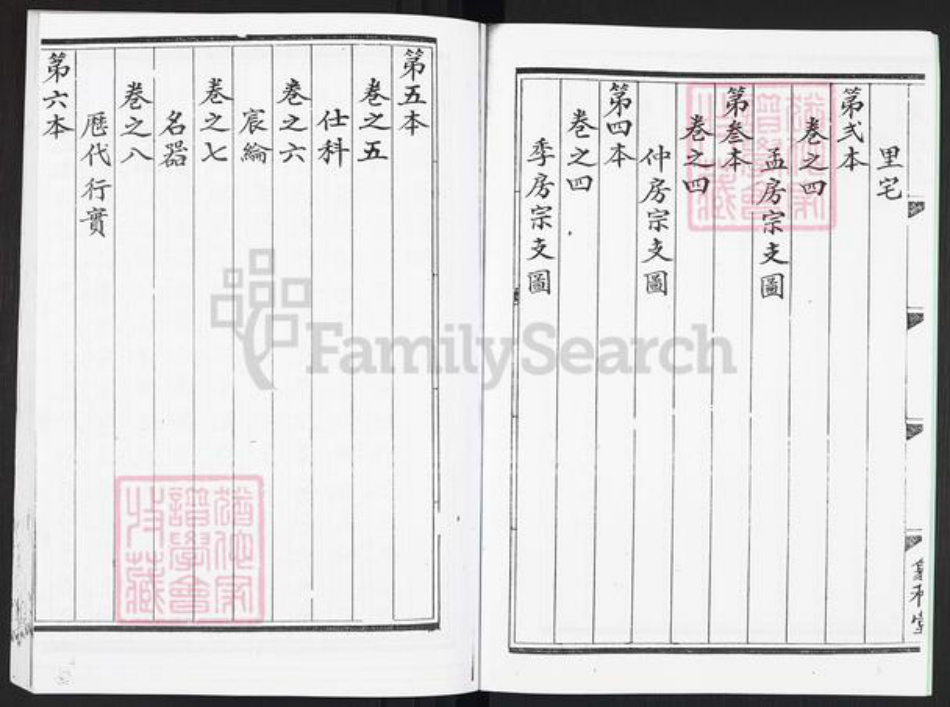 里宅
第弍本
卷之四
孟房宗支圖
第叁本
卷之四
仲房宗支圖
第四本
卷之四
季房宗支圖
第五本
卷之五
仕科
卷之六
宸綸
卷之七
名器
卷之八
歷代行實
第六本
FamilySearch
譜學會
收藏